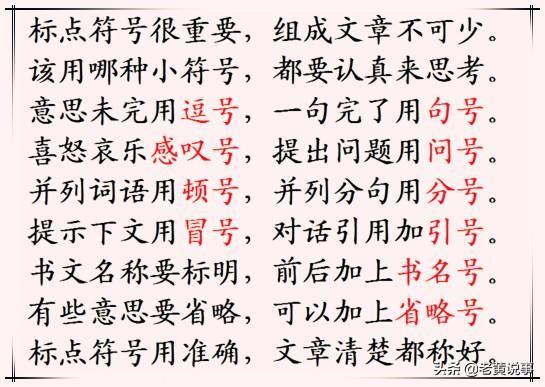 标点符号很重要，组成文章不可少。
该用哪种小符号，都要认真来思考。
意思未完用逗号，一句完了用句号。
喜怒哀乐感叹号，提出问题用问号。
并列词语用顿号，并列分句用分号。
提示下文用冒号，对话引用加引号。
书文名称要标明，前后加上书名号。
有些意思要省略，可以加上省略号。
标点符号用准确，文章清楚都称好。
头条 @老黄说事